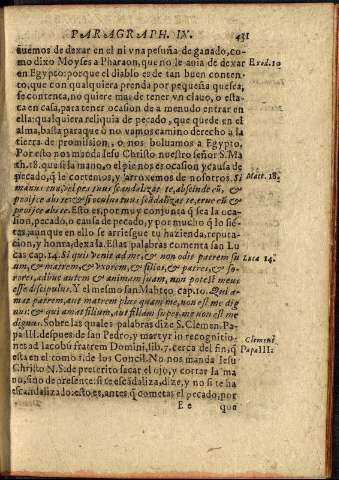 PARAGRAPH. IX. 431
ñuemos de dexar en el ni vna pesuña de ganado, co-
mo dixo Moyses a Pharaon, que no le auia de dexar Exod. 10
en Egypto: porque el diablo es de tan buen conten-
to, que con qualquiera prenda por pequeña que sea,
se contenta, no quiere mas de tener vn clauo, o esta-
ca en casa, para tener ocasion de a menudo entrar en
ella: qualquiera reliquia de pecado, que quede en el
alma, basta para que o no vamos camino derecho a la
tierra de promission, o nos boluamos a Egypto.
Por esto nos manda Iesu Christo nuestro señor S. Ma
th. 18. que si la mano, o el pie nos es ocasion y causa de
pecado, q̃ le cortemos, y arroxemos de nosotros. Si Matt. 18.
manus tua, vel pes tuus scandalizat te, abscinde eū, &
proijce abs te: & si oculus tuus scandalizat te, erue eū &
proijce abs te. Esto es, por muy conjunta q̃ sea la oca-
sion, pecado, o causa de pecado, y por mucho q̃ lo siē-
tas, aunque en ello se arriesgue tu hazienda, reputa-
cion, y honra, dexa la. Estas palabras comenta san Lu
cas cap. 14. Si quis venit ad me, & non odit patrem su Luca 14.
um, & matrem, & vxorem, & filios, & patres, & so-
rores, adhuc autem & animam suam, non potest meus
esse discipulus. Y el mesmo san Matteo, cap. 10. Qui a-
mat patrem, aut matrem plus quam me, non est me dig
nus: & qui amat filium, aut filiam super me, non est me
dignus. Sobre las quales palabras dize S. Clemen. Pa- Clemen.
pa III. despues de san Pedro, y martyr in recognitio- Papa III:
nes ad Iacobū fratrem Domini, lib. 7. cerca del fin, q̃
esta en el tomo 1. de los Concil. No nos manda Iesu
Christo N. S. de preterito sacar el ojo, y cortar la ma
no, sino de presente: si te escādaliza, dize, y no si te ha
escandalizado: esto es, antes q̃ cometas el pecado, por
E e que